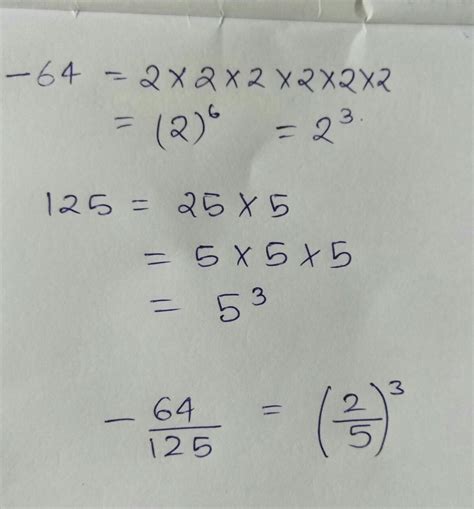 -64 = 2×2×2×2×2×2
= (2)⁶ = 2³.
125 = 25×5
= 5×5×5
= 5³
- 64/125 = (2/5)³